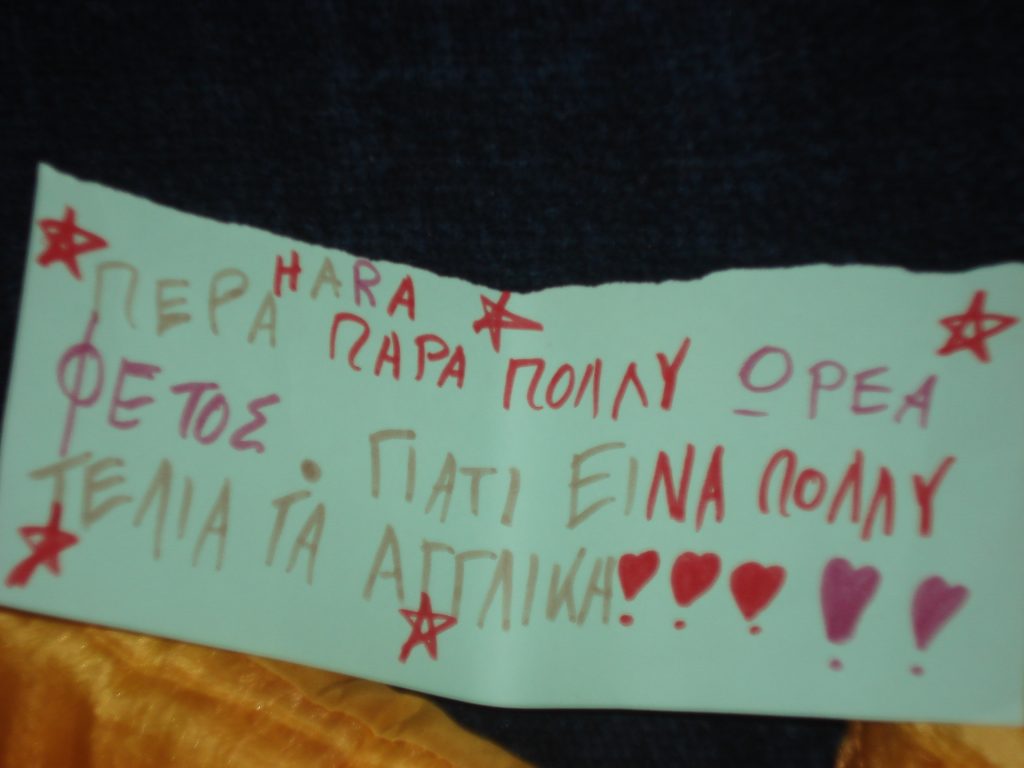 ΠΕΡΑ HARA ΠΑΡΑ ΠΟΛΛΥ ΩΡΕΑ
ΦΕΤΟΣ. ΓΙΑΤΙ ΕΙΝΑ ΠΟΛΛΥ
ΤΕΛΙΑ ΤΑ ΑΓΓΛΙΚΗ!!!!!